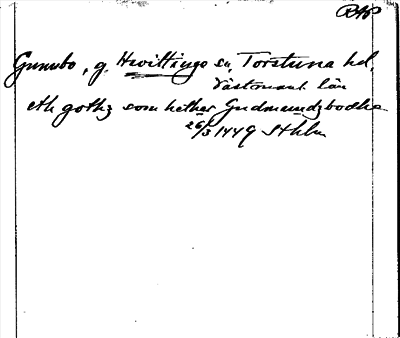 Gunnbo, g. Hvittinge sn, Torstuna hd,
Västmanl. län
eth gothz som hether Gudmundzbodha
26/3 1449 Sthlm